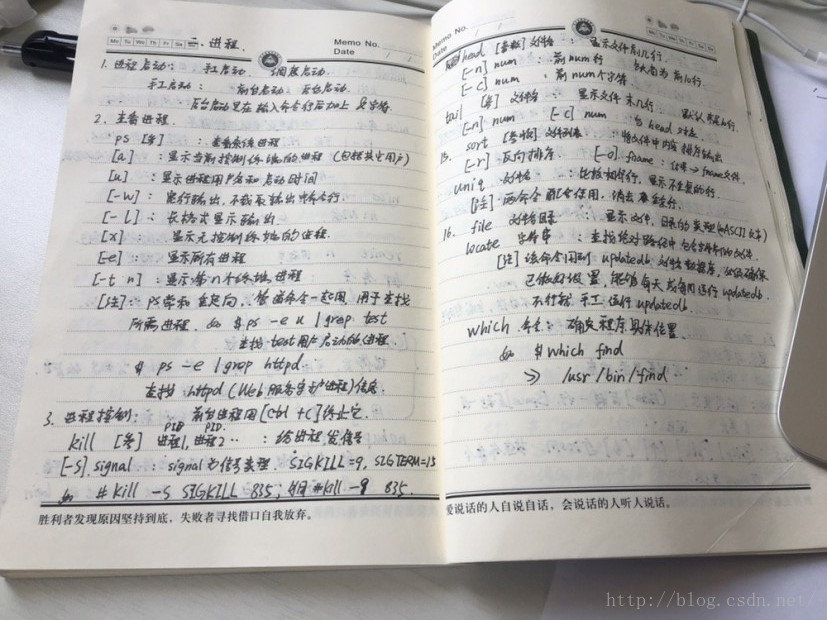 二、进程.
Memo No.
Mo Tu We Th Fr Sa Su
Date / /
1. 进程启动: 手工启动、调度启动.
手工启动: 前台启动、后台启动.
后台启动是在输入命令行后加上 &字符.
2. 查看进程.
ps [参] : 查看系统进程
[a] : 显示当前控制终端的进程 (包括其它用户)
[u] : 显示进程用户名和启动时间
[-w] : 宽行输出,不截取输出中命令行.
[-l] : 长格式显示输出.
[x] : 显示无控制终端的进程.
[-e] : 显示所有进程
[-t n] : 显示第n个终端进程
[注]: ps常和重定向、管道命令一起用,用于查找
所需进程. 如 $ps -e u | grep test
查找test用户启动的进程.
# ps -e | grep httpd
查找 httpd (Web服务守护进程) 信息
3. 进程控制: 前台进程用[ctrl +c]终止它.
PID PID.
kill [参] 进程1,进程2 ·· : 给进程发信号
[-s] signal signal是信号类型. SIGKILL=9, SIGTERM=15
如 # kill -s SIGKILL 835; # kill -9 835.
胜利者发现原因坚持到底,失败者寻找借口自我放弃。
Memo No.
Mo Tu We Th Fr Sa Su
Date / /
head [参数] 文件名 : 显示文件前几行.
[-n] num : 前num行 为前10行.
[-c] num : 前num个字符
tail [参] 文件名 : 显示文件末几行.
[-n] num [-c] num 与head
15. sort [参数] 文件列表 : 将文件中内容排序输出
[-r] 反向排序 [-o] fname : 结果→fname文件.
uniq 文件名 : 比较相邻行,显示不重复的行.
[注] 两命令配合使用,消去重复行.
16. file 文件或目录 : 显示文件、目录的类型 (如ASCII文本)
locate 字符串 : 查找绝对路径中包含字符串的文件.
[注] 该命令用到updatedb文件数据库,必须确保
已做好设置,能够每天或每周运行updatedb.
不行就手工运行updatedb.
which 命令: 确定程序具体位置.
如 $ which find
≫ /usr/bin/find
爱说话的人自说自话,会说话的人听人说话。
http://blog.csdn.net/